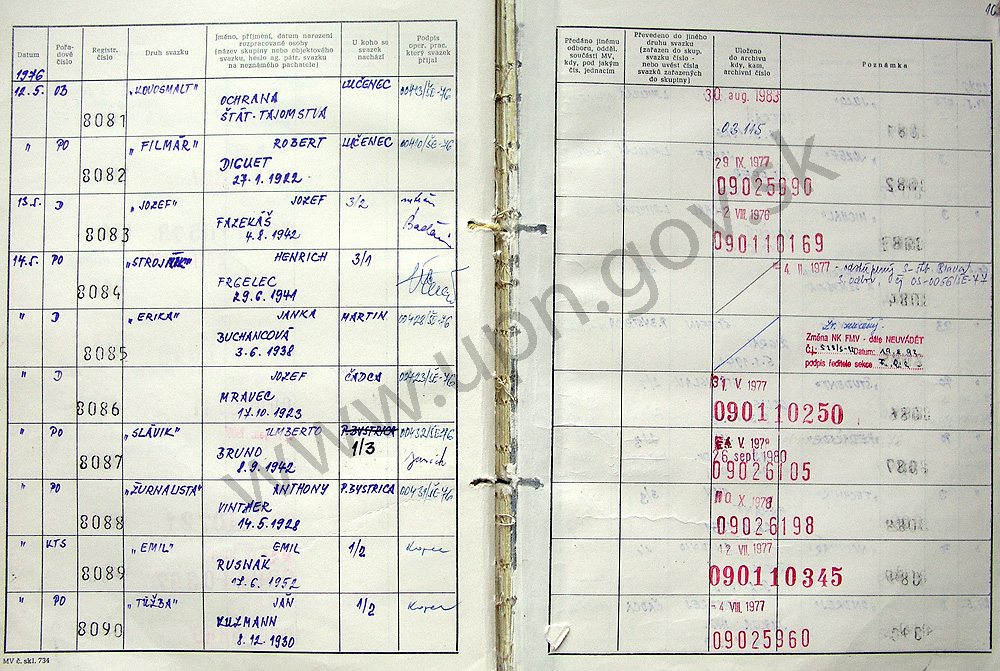 Datum
Pořa-
dové
číslo
Registr.
číslo
Druh svazku
Jméno, příjmení, datum narození
rozpracované osoby
(název skupiny nebo objektového
svazku, heslo ag. pátr. svazku
na neznámého pachatele)
U koho se
svazek
nachází
Podpis
oper. prac.
který svazek
přijal
1976
12.5. OB 8081 „KOVOSMALT" OCHRANA LUČENEC 00413/ŠE-76
ŠTÁT. TAJOMSTVA
" PO 8082 „FILMÁR" ROBERT LUČENEC 00410/ŠE-76
DIGUET
27.1.1922
13.5. D 8083 „JOZEF" JOZEF 3/2
FAZEKÁŠ
4.8.1942
14.5. PO 8084 „STROJNÍK" HENRICH 3/1
FRGELEC
29.6.1941
" D 8085 „ERIKA" JANKA MARTIN 00428/ŠE-76
BUCHANCOVÁ
3.6.1938
" D 8086 JOZEF ČADCA 00423/ŠE-76
MRAVEC
17.10.1923
" PO 8087 „SLÁVIK" UMBERTO P.BYSTRICA 00432/ŠE-76
BRUNO 1/3
8.9.1942
" PO 8088 „ŽURNALISTA" ANTHONY P.BYSTRICA 00431/ŠE-76
VINTHER
14.5.1928
" KTS 8089 „EMIL" EMIL 1/2
RUSNÁK
17.6.1952
" PO 8090 „TÚŽBA" JÁN 1/2
KUZMANN
8.12.1930
MV č. skl. 734
Předáno jinému
odboru, odděl.
součásti MV,
kdy, pod jakým
čís. jednacím
Převedeno do jiného
druhu svazku
(zařazen do skup.
svazku číslo -
nebo uvést čísla
svazků zařazených
do skupiny)
Uloženo
do archivu
kdy, kam,
archivní číslo
Poznámka
30 aug. 1983
03 115
29 IX. 1977
09025690
-2 VIII. 1976
090110169
-4 II. 1977
Změna NK FMV - dále NEUVÁDĚT
Datum:
podpis ředitele sekce
31. V 1977
090110250
V 1979
26 sept. 1980
09026105
X. 1978
09026198
12. VII. 1977
090110345
-4 VIII. 1977
09025960
www.upn.gov.sk